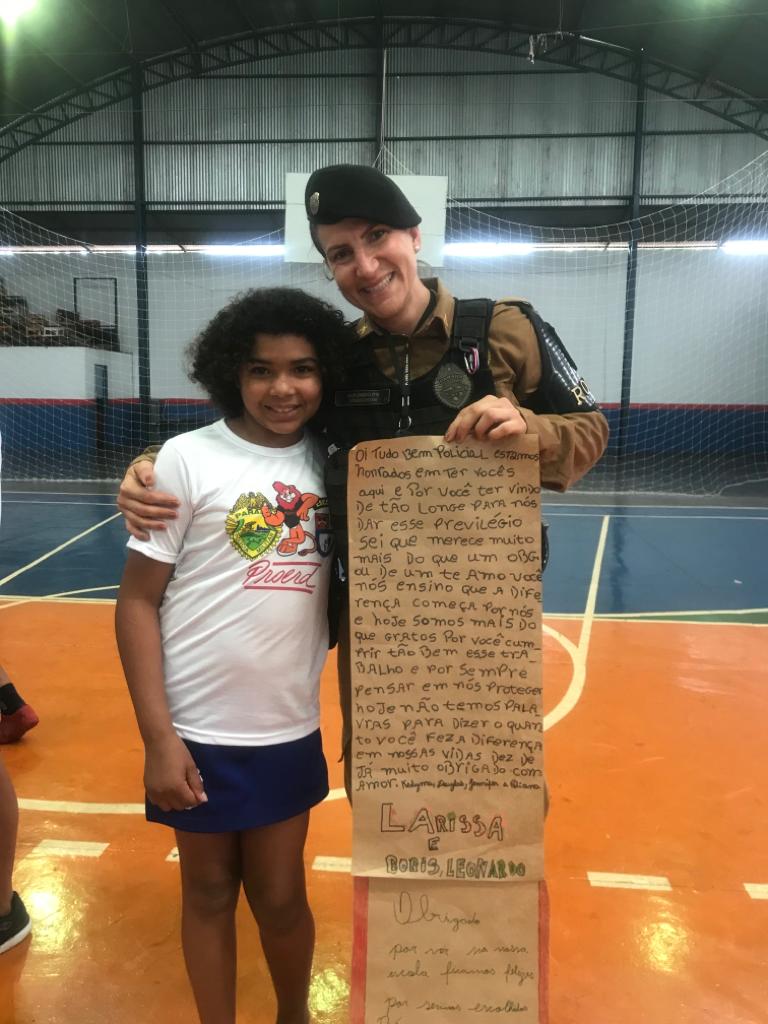 PARANÁ
Proerd
RO
Oi Tudo Bem Policial estamos
honrados em Ter vocês
aqui e Por você ter vindo
De tão Longe Para nós
Dar esse Previlégio
Sei que merece muito
mais Do que um obg
ou De um te Amo você
nós ensino que a Dife
rença começa Por nós
e hoje somos mais Do
que gratos Por você cum-
Prir tão Bem esse tra-
Balho e Por sempre
Pensar em nós Proteger
hoje não temos Pala
vras Para Dizer o quan
to você fez a Diferença
em nossas vidas Dez De
Já muito obrigado com
amor. Douglas, Jennifer e
LARISSA
E
BORIS, LEONARDO
Obrigado
por vir na nossa
escola ficamos felizes
por sermos escolhidos